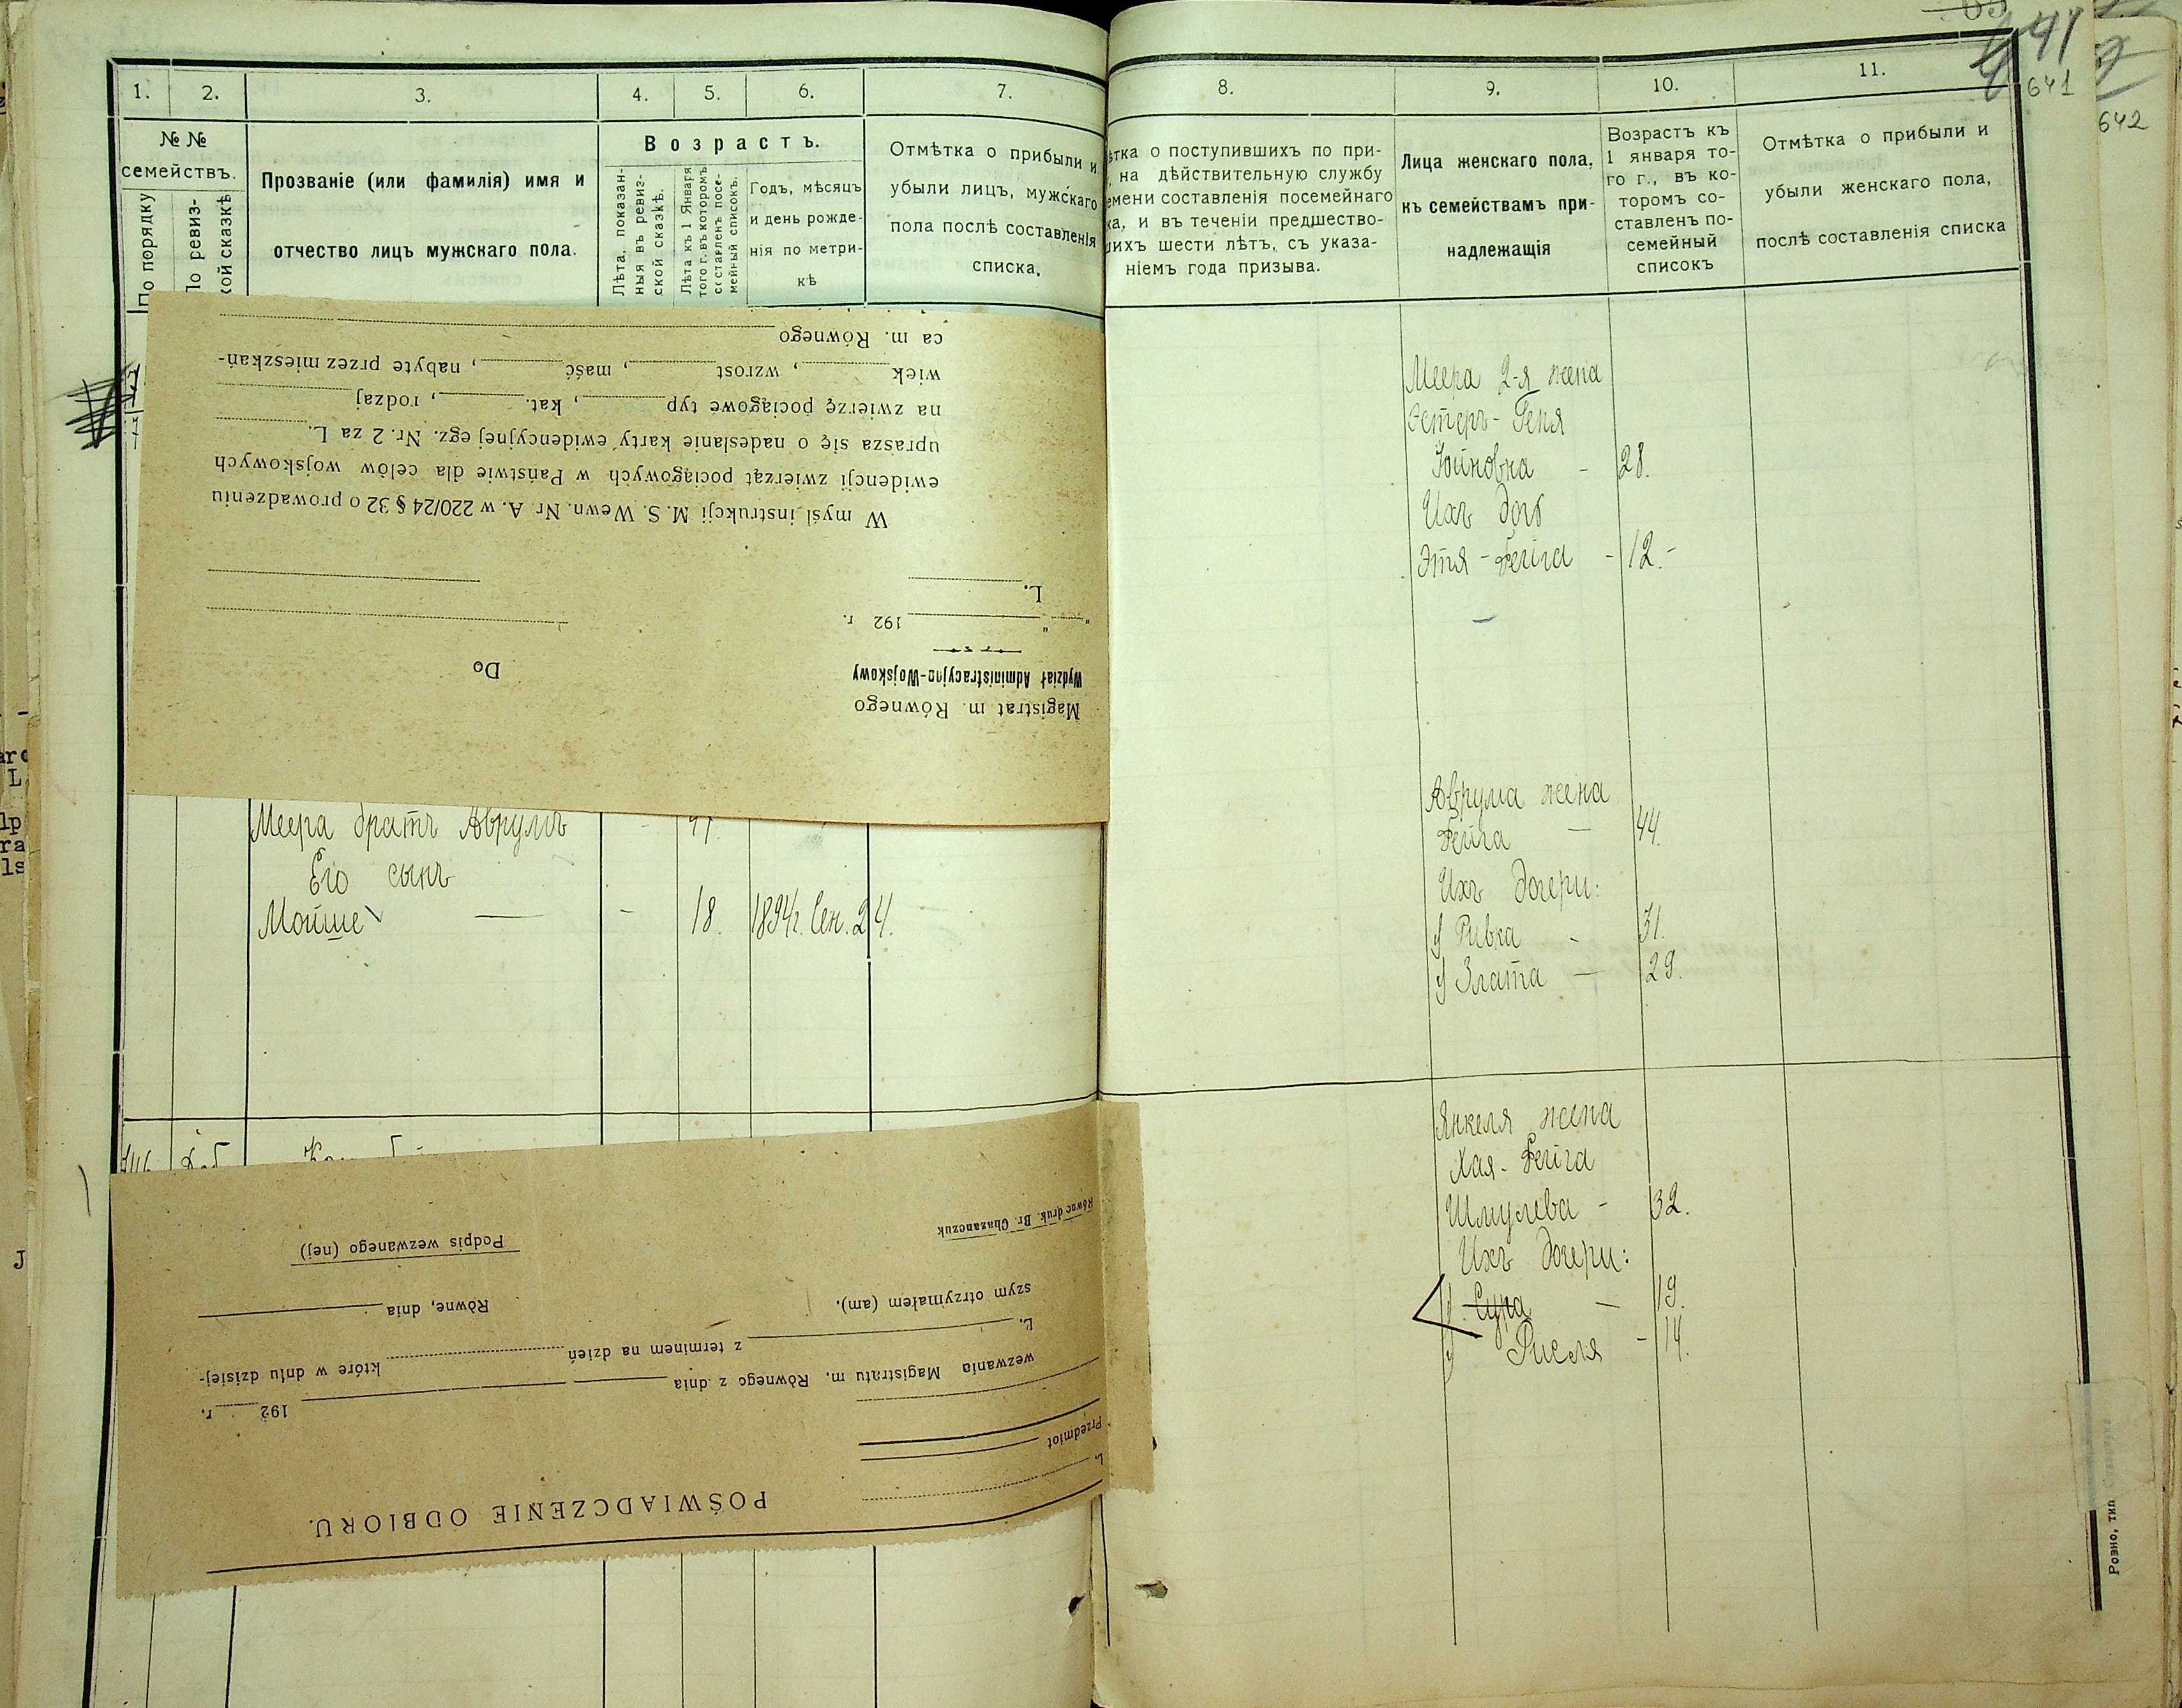 641
641
642
1.
2.
3.
4.
5.
6.
7.
8.
9.
10.
11.
№ №
семействъ.
По порядку
По ревиз-
кой сказкѣ
Прозваніе (или фамилія) имя и
отчество лицъ мужскаго пола.
Возрастъ.
Лѣта, показан-
ныя въ ревиз-
ской сказкѣ.
Лѣта къ 1 Января
того г. въ которомъ
составленъ посе-
мейный списокъ.
Годъ, мѣсяцъ
и день рожде-
нія по метри-
кѣ
Отмѣтка о прибыли и
убыли лицъ, мужскаго
пола послѣ составленія
списка.
ѣтка о поступившихъ по при-
, на дѣйствительную службу
емени составленія посемейнаго
ка, и въ теченіи предшество-
шихъ шести лѣтъ, съ указа-
ніемъ года призыва.
Лица женскаго пола,
къ семействамъ при-
надлежащія
Возрастъ къ
1 января то-
го г., въ ко-
торомъ со-
ставленъ по-
семейный
списокъ
Отмѣтка о прибыли и
убыли женскаго пола,
послѣ составленія списка
Magistrat m. Równego
Wydział Administracyjno-Wojskowy
Do
„ “ 192 r.
L.
W myśl instrukcji M. S. Wewn. Nr. A. w 220/24 § 32 o prowadzeniu
ewidencji zwierząt pociągowych w Państwie dla celów wojskowych
uprasza się o nadesłanie karty ewidencyjnej egz. Nr. 2 za L.
na zwierzę pociągowe typ , kat. , rodzaj
wiek , wzrost , maść , nabyte przez mieszkań-
ca m. Równego
Меера братъ Аврумъ -
Его сынъ
Мойше — - 18. 1894г. Сен. 24.
Меера 2-я жена
Эстеръ-Геня
- 28.
Ихъ доч
Этя-Фейга - 12.-
Аврума жена
Фейга — 44.
Ихъ дочери:
Ривка - 31.
Злата — 29.
Янкеля жена
Хая-Фейга
Шмулева - 32.
Ихъ дочери:
Сура — 19.
Рисля - 14.
POŚWIADCZENIE ODBIORU.
L.
Przedmiot
192 r.
wezwania Magistratu m. Równego z dnia
które w dniu dzisiej-
L. z terminem na dzień
szym otrzymałem (am).
Równe, dnia
Podpis wezwanego (nej)
Równe druk. Br. Chazanczuk
Ровно, тип